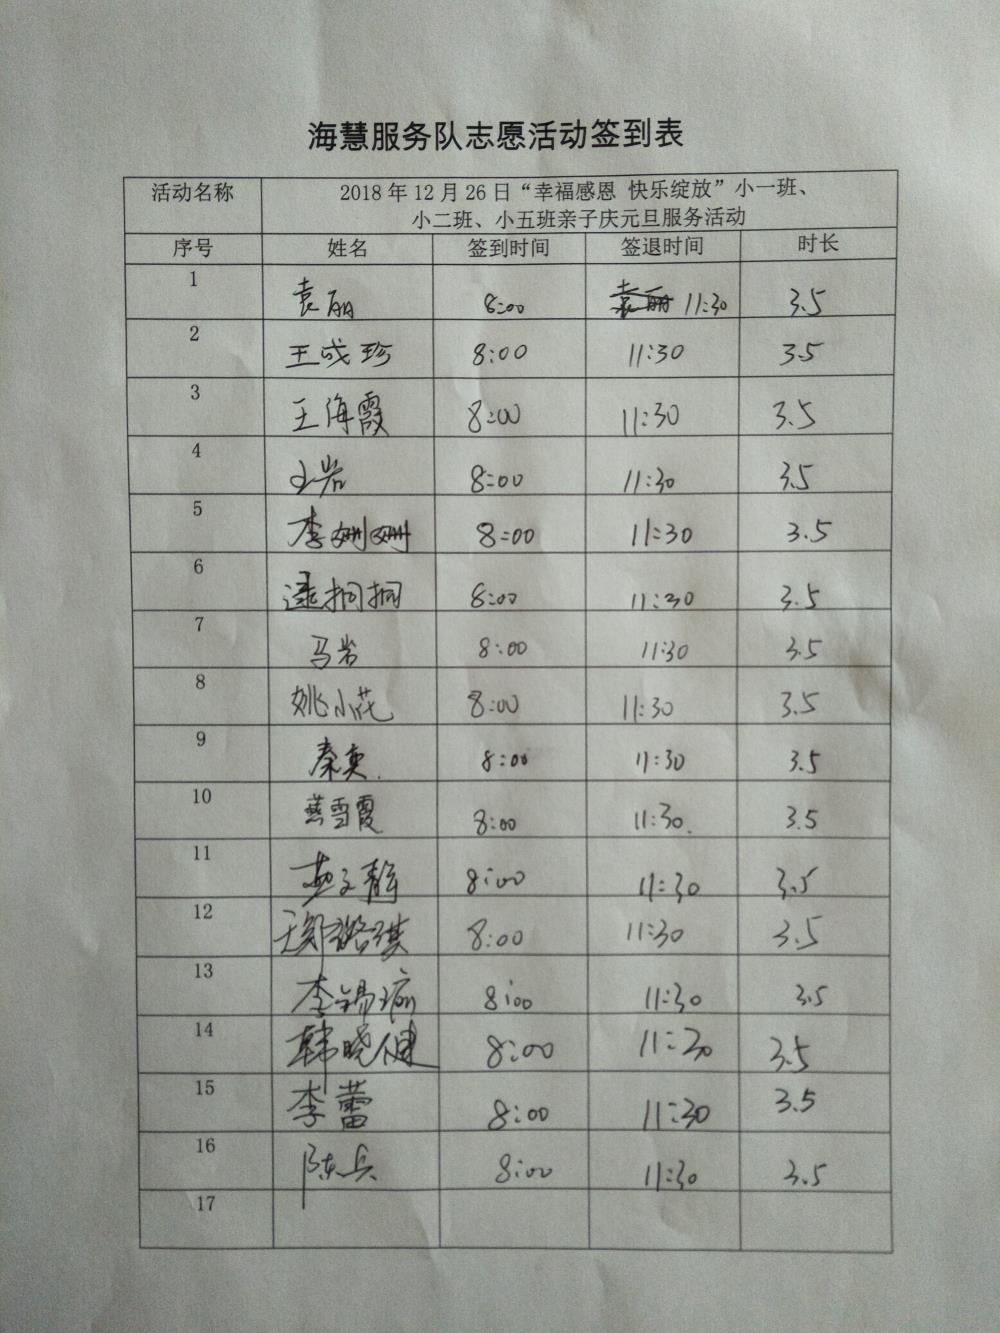 海慧服务队志愿活动签到表
活动名称 2018 年 12 月 26 日“幸福感恩 快乐绽放”小一班、
小二班、小五班亲子庆元旦服务活动
序号 姓名 签到时间 签退时间 时长
1 袁丽 8:00 11:30 3.5
2 王成珍 8:00 11:30 3.5
3 王海霞 8:00 11:30 3.5
4 王岩 8:00 11:30 3.5
5 李姗姗 8:00 11:30 3.5
6 8:00 11:30 3.5
7 马岩 8:00 11:30 3.5
8 姚小花 8:00 11:30 3.5
9 秦爽 8:00 11:30 3.5
10 燕雪霞 8:00 11:30 3.5
11 8:00 11:30 3.5
12 8:00 11:30 3.5
13 李锡瑜 8:00 11:30 3.5
14 韩晓健 8:00 11:30 3.5
15 李蕾 8:00 11:30 3.5
16 陈兵 8:00 11:30 3.5
17